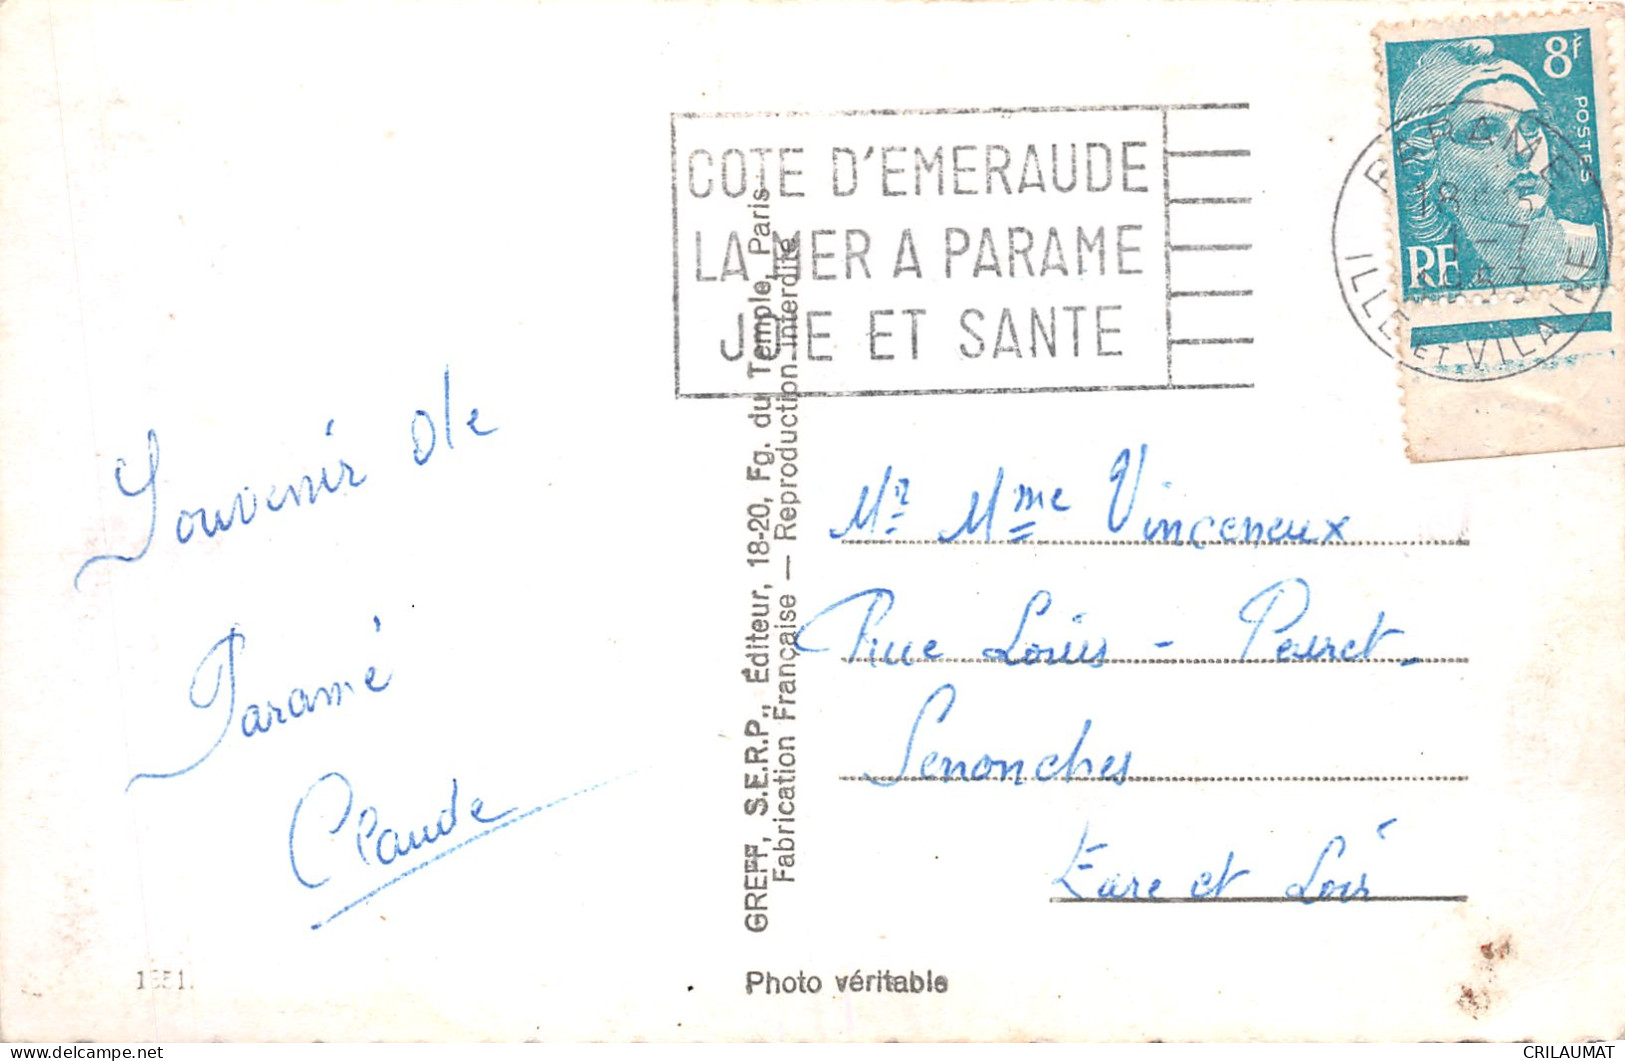 COTE D'EMERAUDE
LA MER A PARAME
JOIE ET SANTE
8F
POSTES
RF
PARAME
18
1-7
1953
ILLE ET VILAINE
Souvenir de
Paramé
Claude
GREFF, S.E.R.P., Éditeur, 18-20, Fg. du Temple, Paris
Fabrication Française — Reproduction interdite
Mr Mme Vinceneux
Rue Louis - Peuret -
Senonches
Eure et Loir
Photo véritable
CRILAUMAT